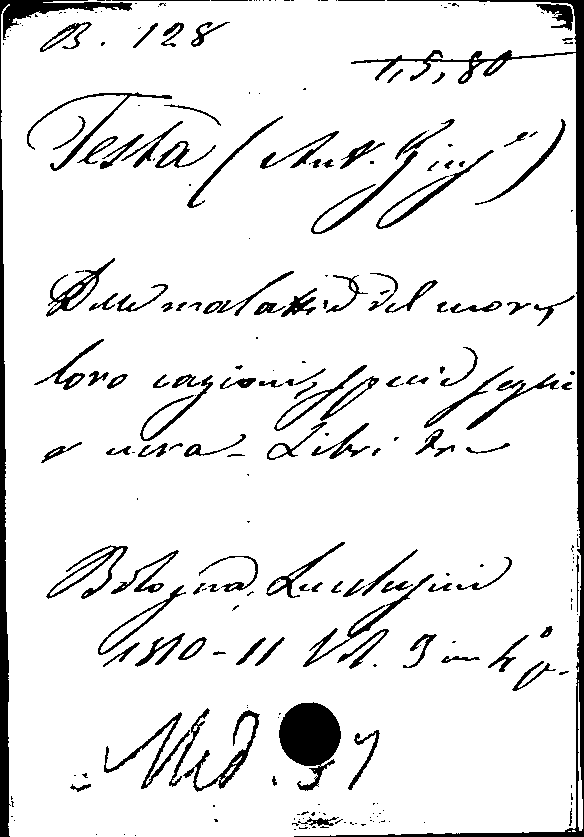 B. 128
1,5,80
Testa (Ant. Gius.e)
Delle malattie del cuore,
loro cagioni, specie, segni
e cura - Libri tre
Bologna, Lucchesini
1810-11 Vol. 3 in 4° p.
Med. 57